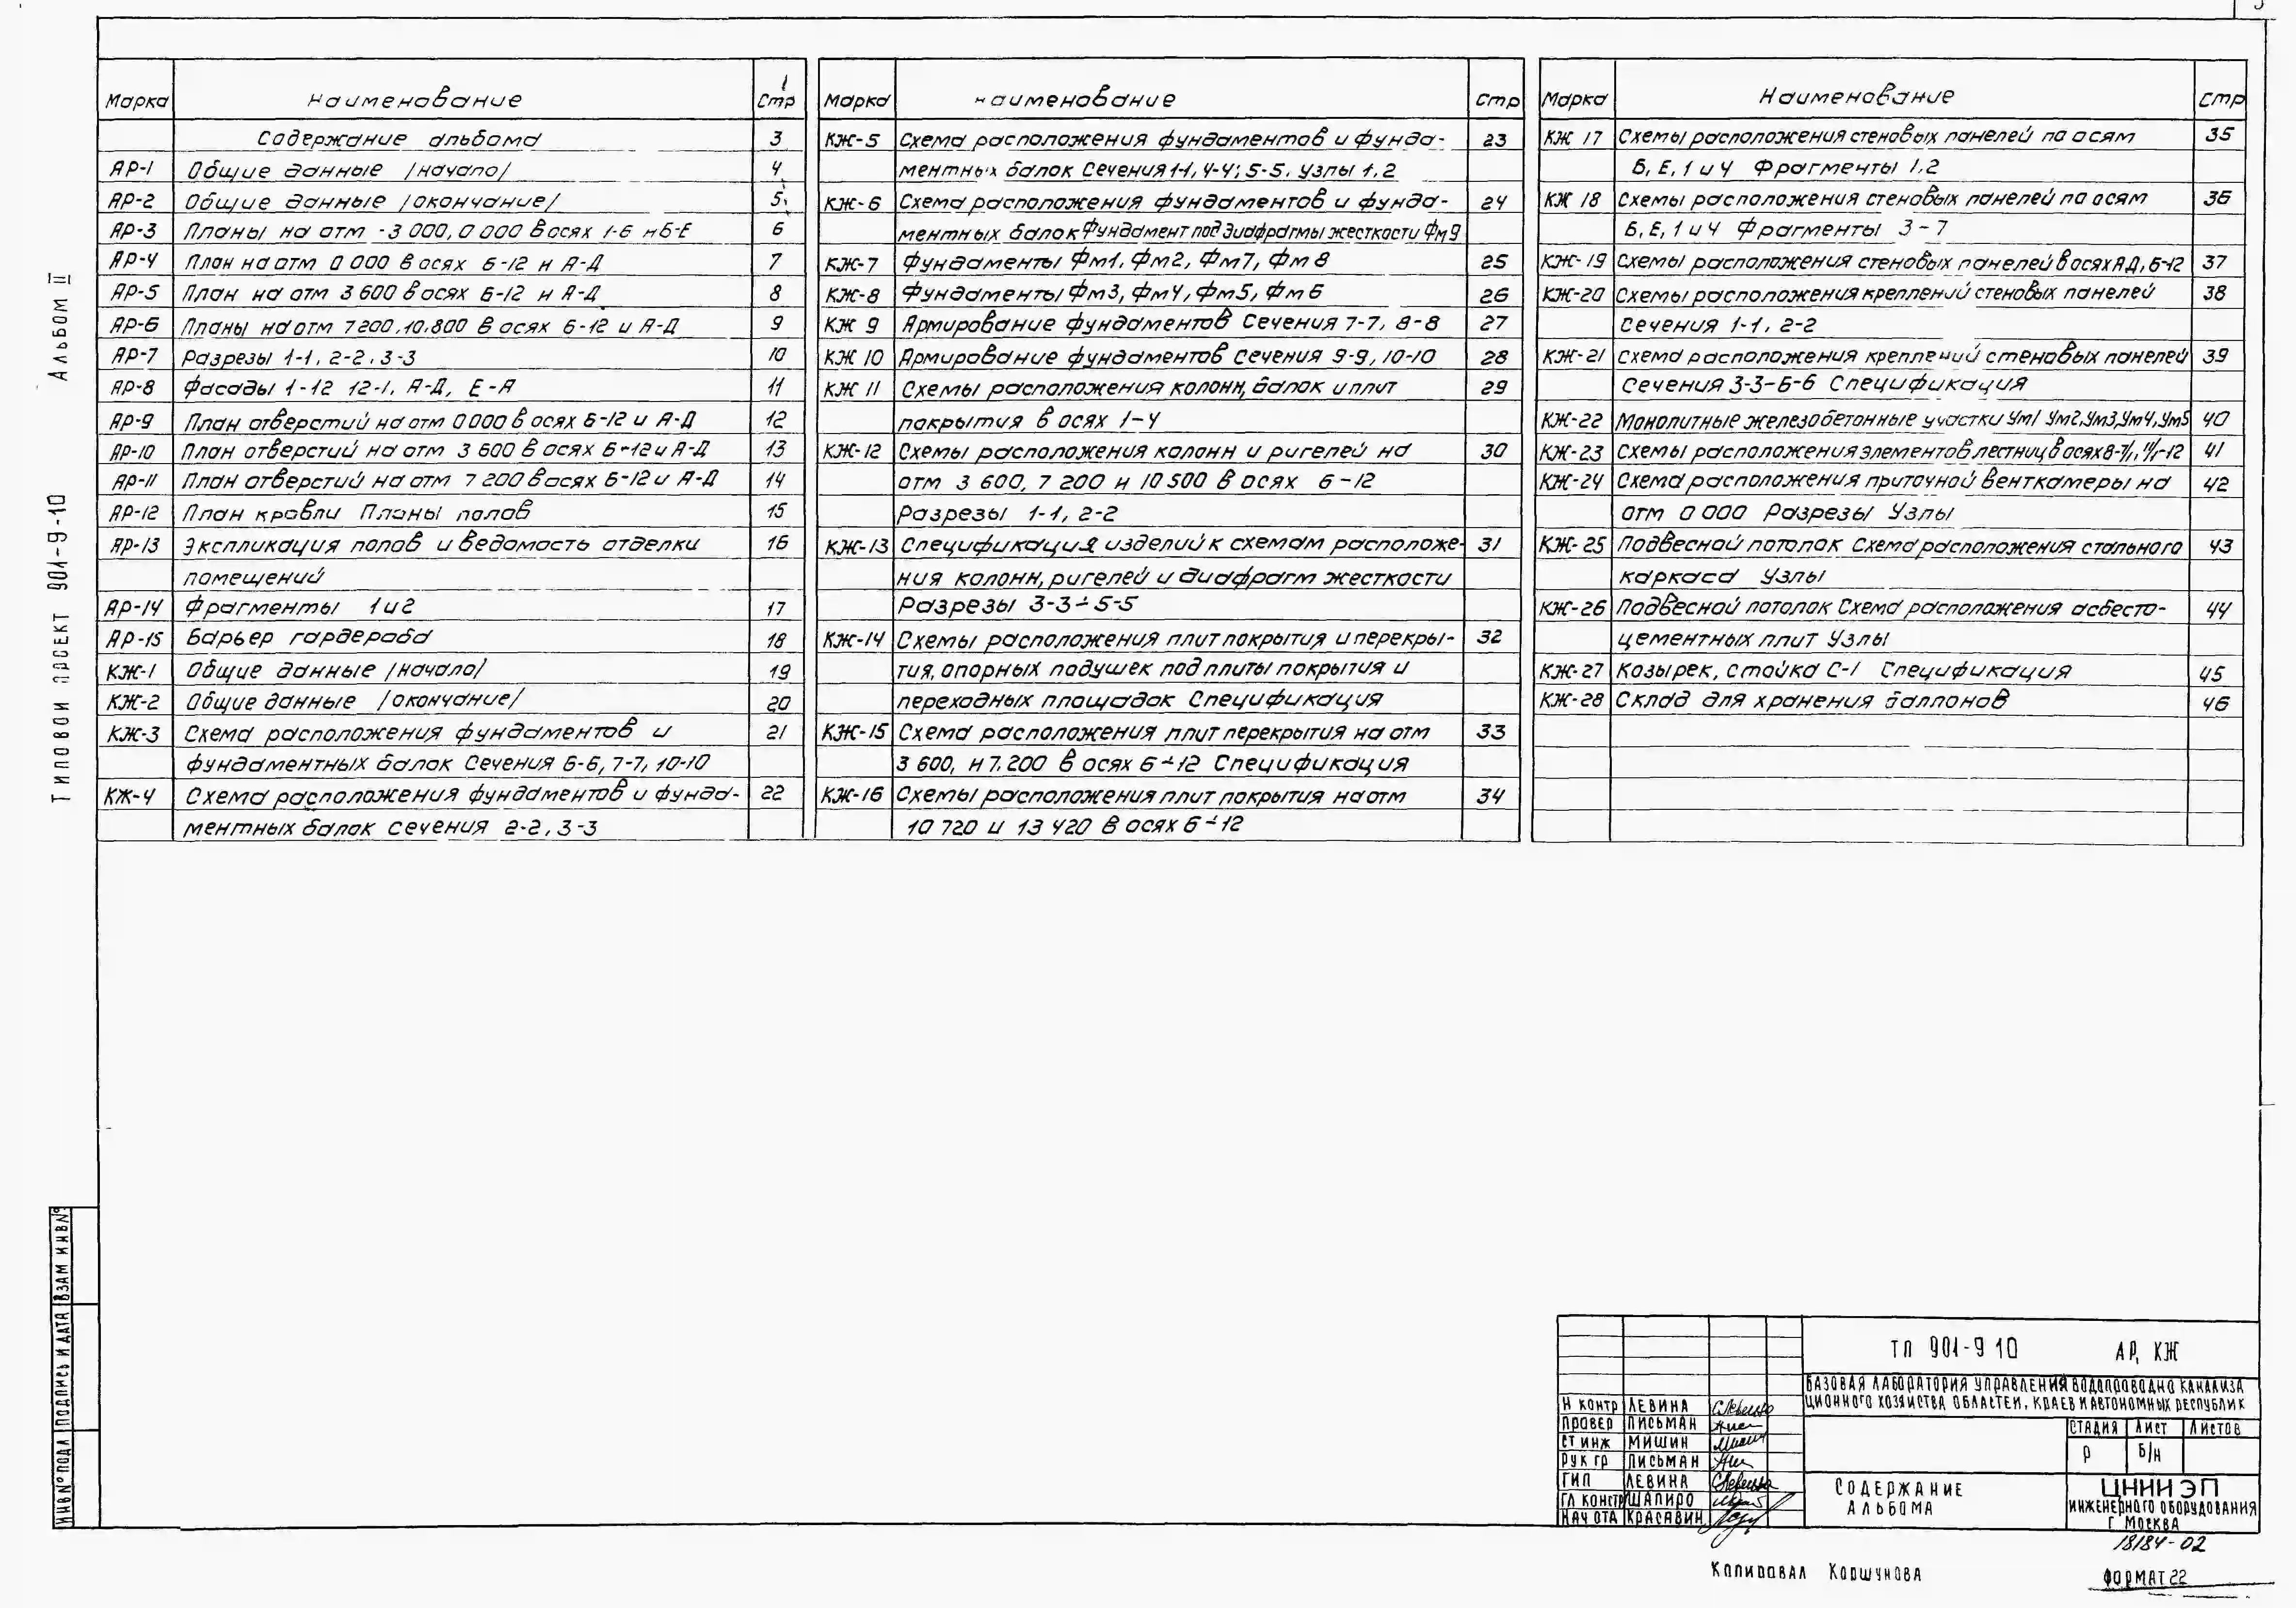 3
Марка Наименование Стр
Содержание альбома 3
АР-1 Общие данные /начало/ 4
АР-2 Общие данные /окончание/ 5
АР-3 Планы на отм -3 000, 0 000 в осях 1-6 и Б-Е 6
АР-4 План на отм 0 000 в осях 6-12 и А-Д 7
АР-5 План на отм 3 600 в осях 6-12 и А-Д 8
АР-6 Планы на отм 7200, 10.800 в осях 6-12 и А-Д 9
АР-7 Разрезы 1-1, 2-2, 3-3 10
АР-8 Фасады 1-12 12-1, А-Д, Е-А 11
АР-9 План отверстий на отм 0 000 в осях 6-12 и А-Д 12
АР-10 План отверстий на отм 3 600 в осях 6-12 и А-Д 13
АР-11 План отверстий на отм 7 200 в осях 6-12 и А-Д 14
АР-12 План кровли Планы полов 15
АР-13 Экспликация полов и ведомость отделки 16
помещений
АР-14 Фрагменты 1 и 2 17
АР-15 Барьер гардероба 18
КЖ-1 Общие данные /начало/ 19
КЖ-2 Общие данные /окончание/ 20
КЖ-3 Схема расположения фундаментов и 21
фундаментных балок Сечения 6-6, 7-7, 10-10
КЖ-4 Схема расположения фундаментов и фунда- 22
ментных балок сечения 2-2, 3-3
Марка Наименование Стр
КЖ-5 Схема расположения фундаментов и фунда- 23
ментных балок Сечения 1-1, 4-4; 5-5. Узлы 1, 2
КЖ-6 Схема расположения фундаментов и фунда- 24
ментных балок Фундамент под диафрагмы жесткости Фм9
КЖ-7 Фундаменты Фм1, Фм2, Фм7, Фм 8 25
КЖ-8 Фундаменты Фм3, Фм4, Фм5, Фм 6 26
КЖ 9 Армирование фундаментов Сечения 7-7, 8-8 27
КЖ 10 Армирование фундаментов Сечения 9-9, 10-10 28
КЖ 11 Схемы расположения колонн, балок и плит 29
покрытия в осях 1-4
КЖ-12 Схемы расположения колонн и ригелей на 30
отм 3 600, 7 200 и 10 500 в осях 6-12
Разрезы 1-1, 2-2
КЖ-13 Спецификация изделий к схемам расположе- 31
ния колонн, ригелей и диафрагм жесткости
Разрезы 3-3÷5-5
КЖ-14 Схемы расположения плит покрытия и перекры- 32
тия, опорных подушек под плиты покрытия и
переходных площадок Спецификация
КЖ-15 Схема расположения плит перекрытия на отм 33
3 600, и 7.200 в осях 6÷12 Спецификация
КЖ-16 Схемы расположения плит покрытия на отм 34
10 720 и 13 420 в осях 6÷12
Марка Наименование Стр
КЖ 17 Схемы расположения стеновых панелей по осям 35
Б, Е, 1 и 4 Фрагменты 1,2
КЖ 18 Схемы расположения стеновых панелей по осям 36
Б, Е, 1 и 4 Фрагменты 3-7
КЖ-19 Схемы расположения стеновых панелей в осях А Д, 6-12 37
КЖ-20 Схемы расположения креплений стеновых панелей 38
Сечения 1-1, 2-2
КЖ-21 Схема расположения креплений стеновых панелей 39
Сечения 3-3-6-6 Спецификация
КЖ-22 Монолитные железобетонные участки Ум1 Ум2, Ум3, Ум4, Ум5 40
КЖ-23 Схемы расположения элементов лестниц в осях 41
КЖ-24 Схема расположения приточной венткамеры на 42
отм 0 000 Разрезы Узлы
КЖ-25 Подвесной потолок Схема расположения стального 43
каркаса Узлы
КЖ-26 Подвесной потолок Схема расположения асбесто- 44
цементных плит Узлы
КЖ-27 Козырек, стойка С-1 Спецификация 45
КЖ-28 Склад для хранения баллонов 46
Типовой проект 901-9-10 Альбом II
ИНВ № ПОДЛ ПОДПИСЬ И ДАТА ВЗАМ ИНВ №
ТП 901-9 10 АР, КЖ
БАЗОВАЯ ЛАБОРАТОРИЯ УПРАВЛЕНИЯ ВОДОПРОВОДНО КАНАЛИЗА
ЦИОННОГО ХОЗЯЙСТВА ОБЛАСТЕЙ, КРАЕВ И АВТОНОМНЫХ РЕСПУБЛИК
Н КОНТР ЛЕВИНА
ПРОВЕР ПИСЬМАН
СТ ИНЖ МИШИН
РУК ГР ПИСЬМАН
ГИП ЛЕВИНА
ГЛ КОНСТР ШАПИРО
НАЧ ОТД КРАСАВИН
СТАДИЯ ЛИСТ ЛИСТОВ
Р Б/Н
СОДЕРЖАНИЕ
АЛЬБОМА
ЦНИИЭП
ИНЖЕНЕРНОГО ОБОРУДОВАНИЯ
Г МОСКВА
18184-02
КОПИРОВАЛ КОРШУНОВА
ФОРМАТ 22